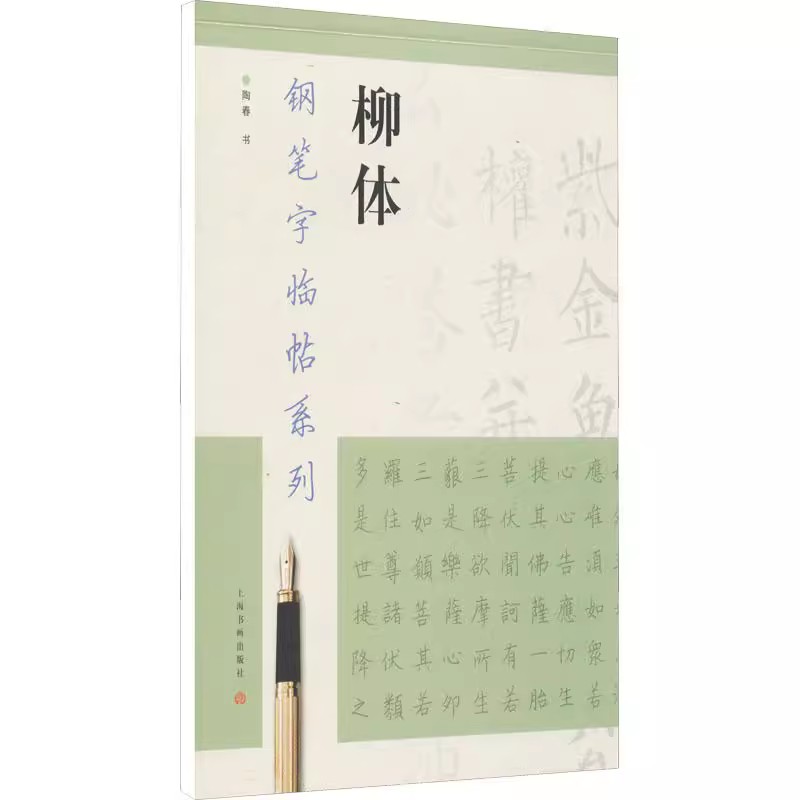 柳体
钢笔字临帖系列
陶春 书
紫金魚
權書并
多羅三藐三菩提心應
是住如是降伏其心唯
世尊願樂欲聞佛告須
提諸菩薩摩訶薩應如
降伏其心所有一切衆
之類若卵生若胎生若
上海书画出版社